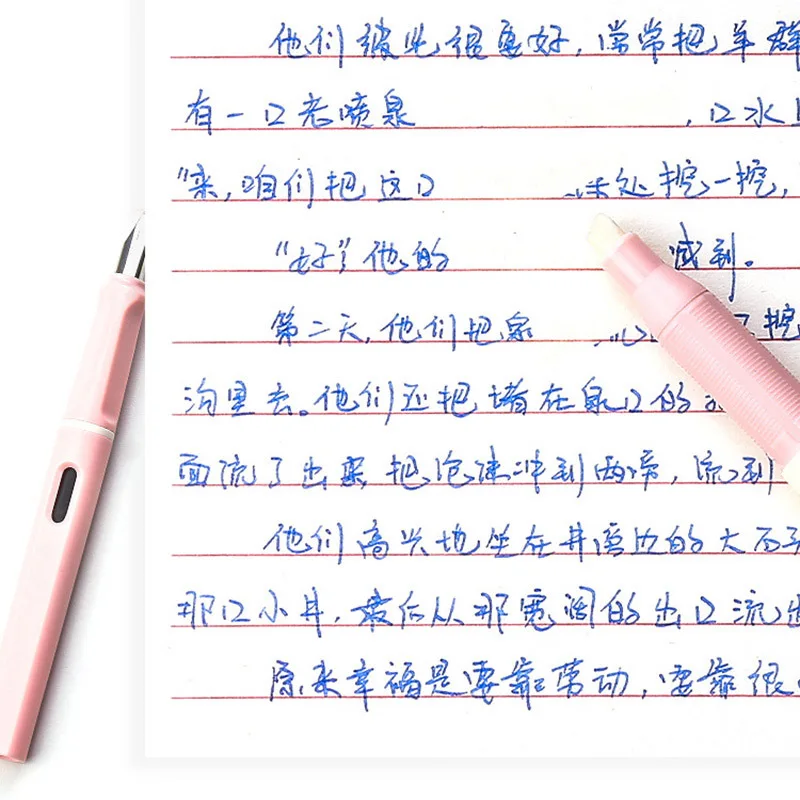 他们彼此很要好，常常把羊群
有一口老喷泉，口水
"来，咱们把这口 处挖一挖，
"好"他的 减到。
第二天，他们把泉 挖
沟里去。他们还把堵在泉口的
面流了出来 把泡沫冲到两旁，流到
他们高兴地坐在井旁边的大石
那口小井，最后从那宽阔的出口流出
原来幸福是要靠劳动，要靠很